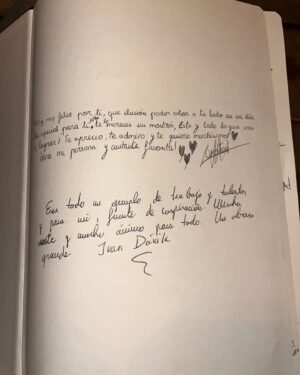 Estoy muy feliz por ti, que ilusión poder estar a tu lado en un día
tan especial para ti, te mereces un montón, Esto y todo lo que vas
a lograr! Te aprecio, te admiro y te quiero muchísimo!
mi persona y cantante favorita!
Eres todo un ejemplo de trabajo y talento,
y para mi, fuente de inspiración. Mucha
suerte y mucho ánimo para todo. Un abrazo
grande. Ivan Dávila